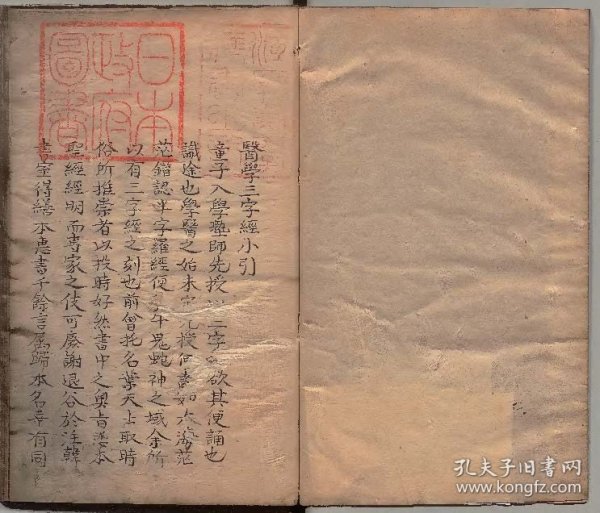 醫學三字經小引
童子入學塾師先授以三字經欲其便誦也
識途也學醫之始未定先授何書如大海茫
茫錯認半字羅經便入牛鬼蛇神之域余所
以有三字經之刻也前曾托名葉天士取時
俗所推崇者以投時好然書中之奧旨悉本
聖經經明而專家之伎可廢謝退谷於注韓
書室得繕本惠書千餘言屬歸本名幸有同
日本
政府
圖書
孔夫子旧书网
www.kongfz.com